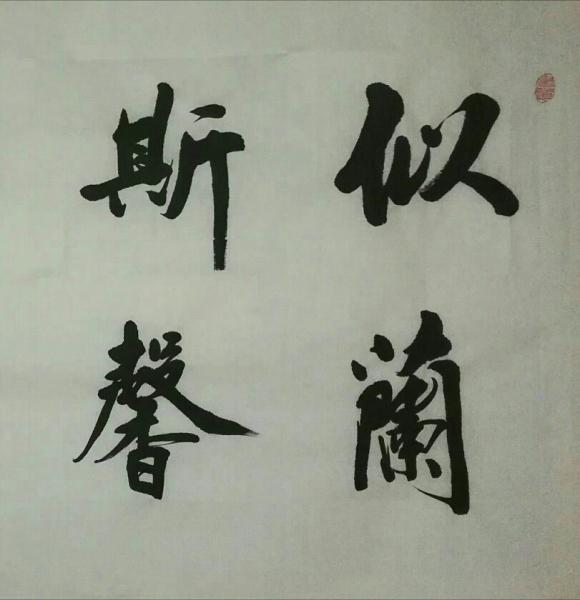 似蘭
斯馨